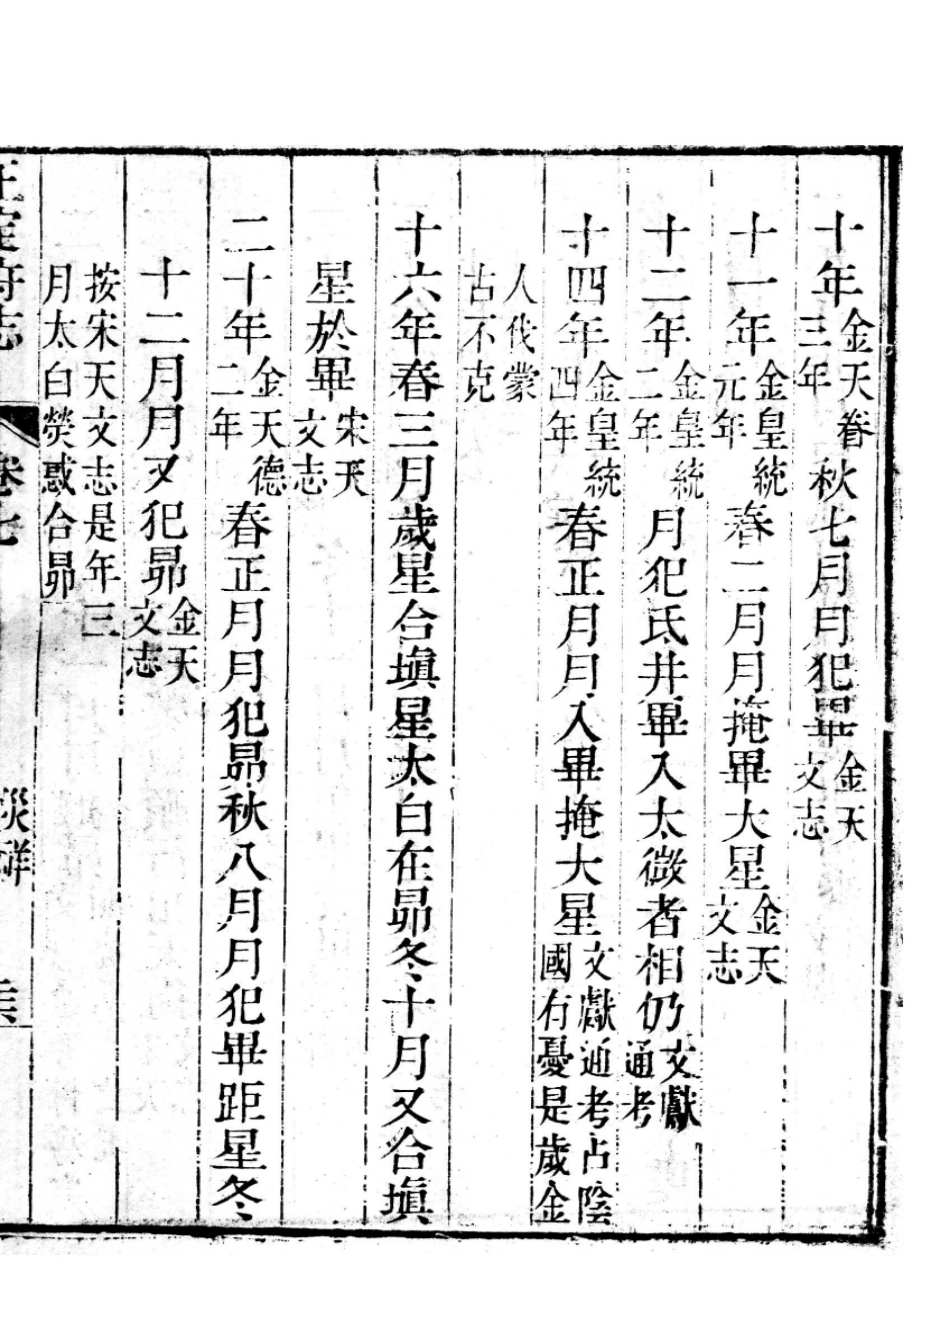 十年金天眷三年秋七月月犯畢金天文志
十一年金皇統元年春二月月掩畢大星金天文志
十二年金皇統二年月犯氐井畢入太微者相仍文獻通考
十四年金皇統四年春正月月入畢掩大星文獻通考占陰國有憂是歲金
人伐蒙古不克
十六年春三月歲星合塡星太白在昴冬十月又合塡
星於畢宋天文志
二十年金天德二年春正月月犯昴秋八月月犯畢距星冬
十二月月又犯昴金天文志
按宋天文志是年三月太白熒惑合昴
正定府志 卷七 災祥